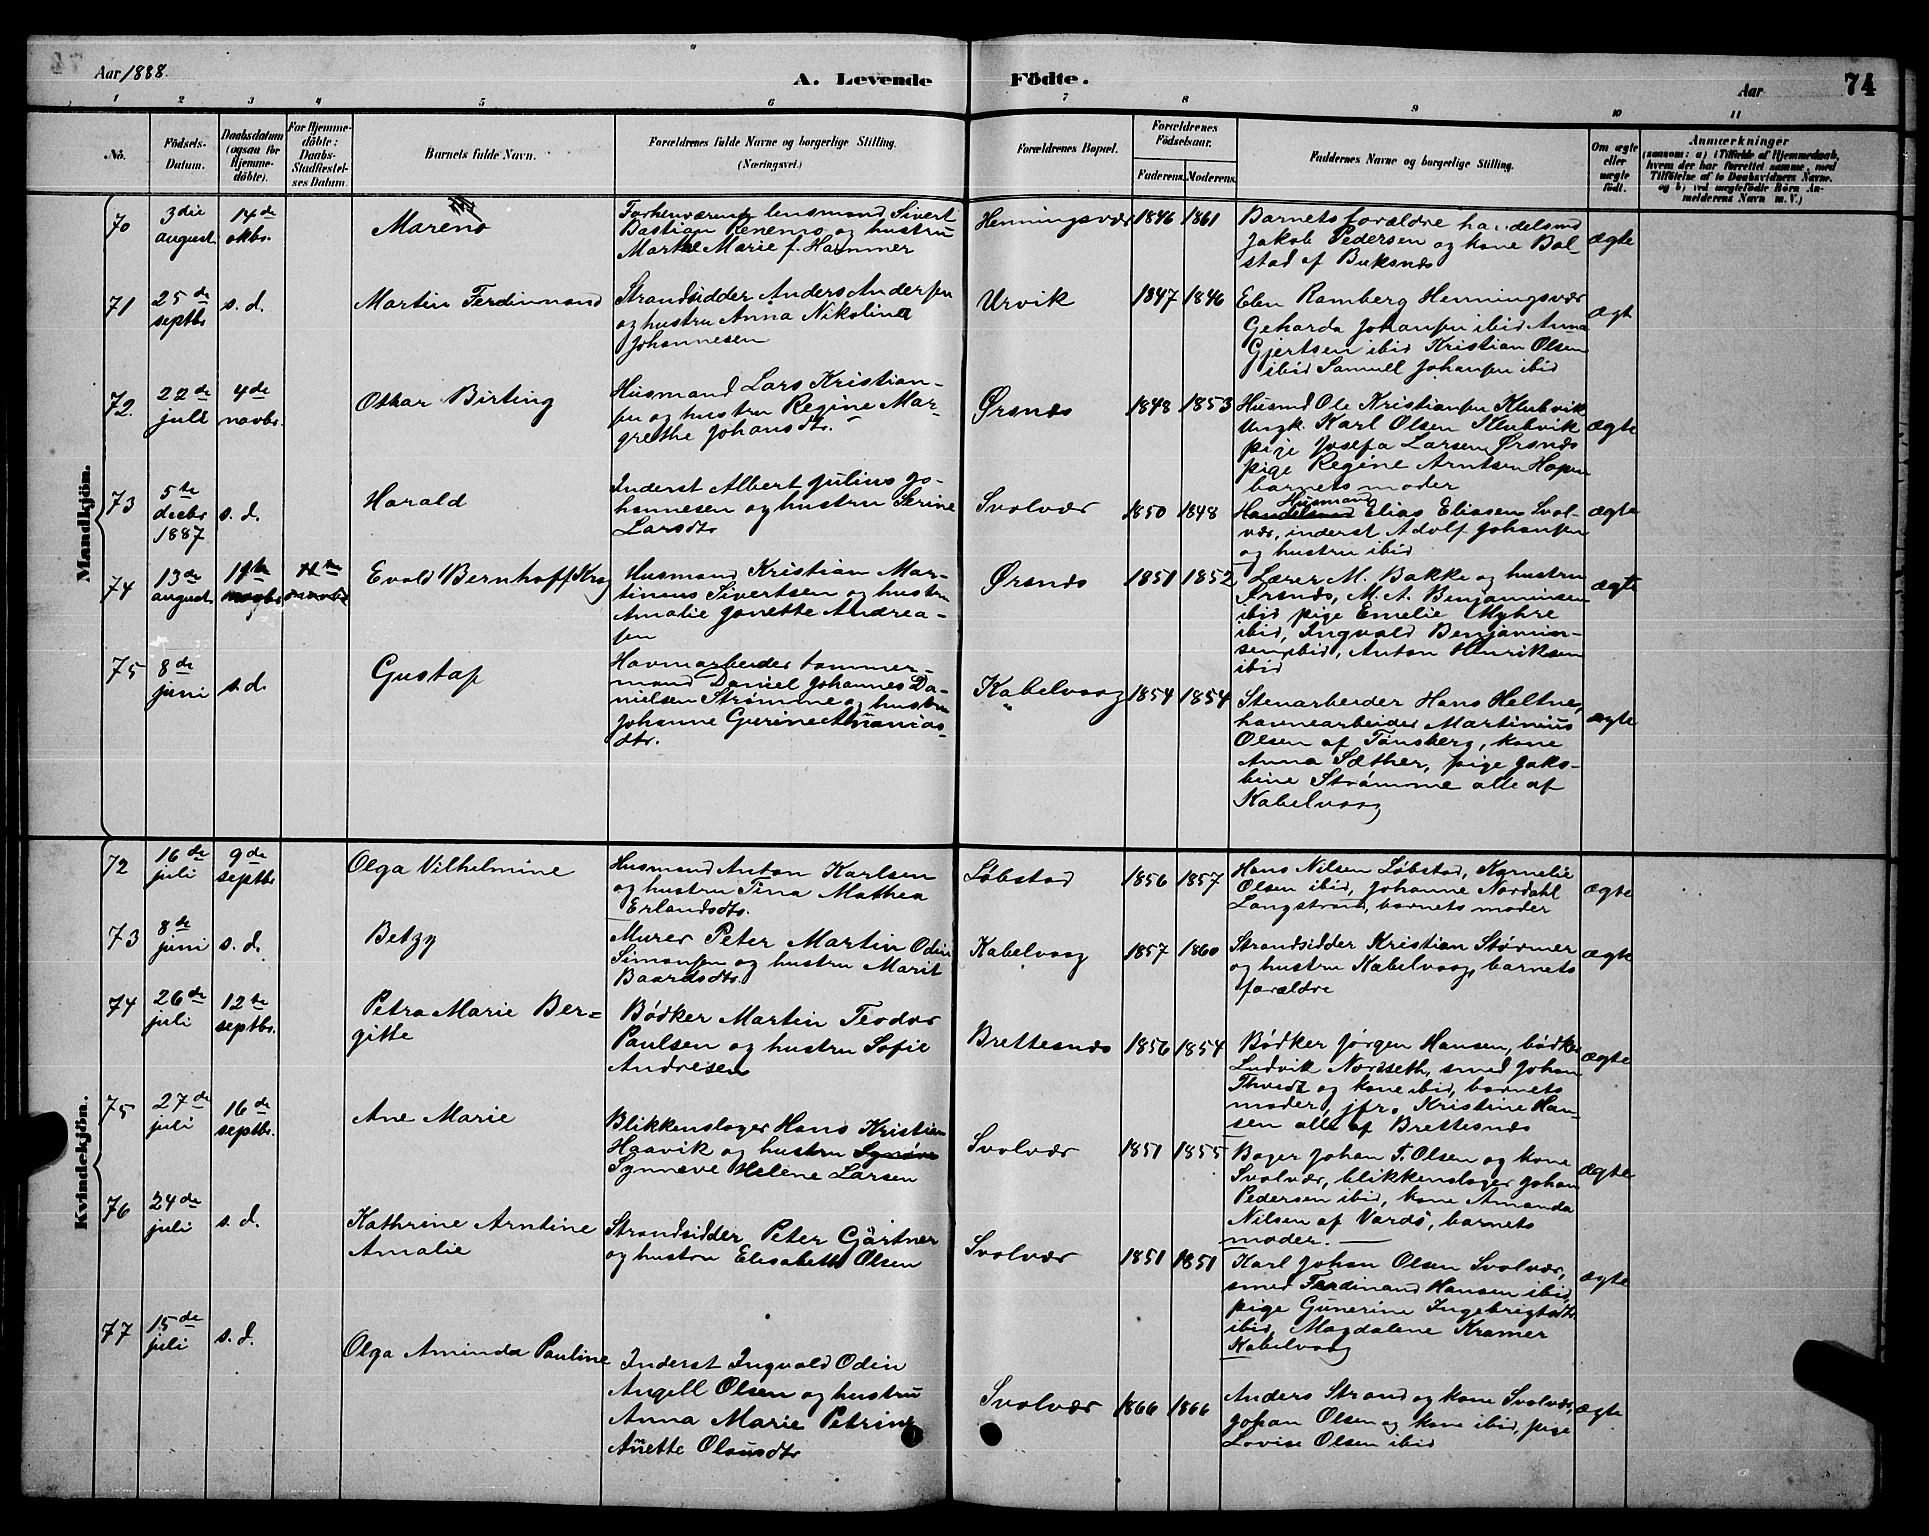 Aar 1888.
A. Levende Födte.
Aar
74
1 2 3 4 5 6 7 8 9 10 11
No.
Födsels-
Datum.
Daabsdatum
(ogsaa for
Hjemme-
döbte).
For Hjemme-
döbte:
Daabs-
Stadfæstel-
ses Datum.
Barnets fulde Navn.
Forældrenes fulde Navne og borgerlige Stilling.
(Næringsvei.)
Forældrenes Bopæl.
Forældrenes
Födselsaar.
Faderens. Moderens.
Faddernes Navne og borgerlige Stilling.
Om ægte
eller
uægte
födt.
Anmærkninger
(saasom: a) i Tilfælde af Hjemmedaab,
hvem der har forrettet samme, med
Tilföielse af to Daabsvidners Navne.
og b) ved uægtefödte Börn An-
melderens Navn m. V.)
Mandkjön.
70
3die
august
14de
oktbr.
Mareno
Forhenværende lensmand Sivert
Bastian Renemo og hustru
Marthe Marie f. Hammer
Henningsvær
1846 1861
Barnets forældre handelsmd
Jakob Pedersen og kone Bol-
stad af Buksnæs
ægte
71
25de
septbr
s. d.
Martin Ferdinand
Strandsidder Anders Andersen
og hustru Anna Nikolina
Johannesen
Urvik
1847 1846
Elen Ramberg Henningsvær
Geharda Johansen ibid Anna
Gjertsen ibid Kristian Olsen
ibid Samuel Johansen ibid
ægt
72.
22de
juli
4de
novbr.
Othar Birting
Husmand Lars Kristian-
sen og hustru Regine Mar-
grethe Johansdtr.
Ørsnæs
1848 1853
Husmd Ole Kristiansen Klubvik
Ungk. Karl Olsen Klubvik
pige Josefa Larsen Ørsnæs
pige Regine Arntsen Hopen
barnets moder
ægte
73
5te
decbr
1887
s. d.
Harald
Inderst Albert Julius Jo-
hannesen og hustru Serine
Larsdtr
Svolvær
1850 1848
Husmand
Handelsmd Elias Eliassen Svol-
vær, inderst Adolf Johansen
og hustru ibid
ægte
74
13de
august
11te
novbr
11te
novbr
Evald Bernhoff Krog
Husmand Kristian Mar-
tinus Sivertsen og hustru
Amalie Janette Andrea-
sen
Ørsnæs
1851 1852
Lærer M. Bakke og hustru
Ørsnæs, M. A. Benjaminsen
ibid pige Emelie Myhre
ibid, Ingvald Benjamin-
sen ibid, Anton Henriksen
ibid
ægte
75
8de
juni
s. d.
Gustaf
Havnearbeider tømmer-
mand Daniel Johannes Da-
nielsen Strømme og hustru
Johanne Gurine Ananias-
dtr.
Kabelvaag
1854 1854
Stenarbeider Hans Heltne,
havnearbeider Martinius
Olsen af Tønsberg, kone
Anna Sæther, pige Jako-
bine Strømme alle af
Kabelvaag
ægte
Kvindekjön.
72
16de
juli
9de
septbr
Olga Vilhelmine
Husmand Anton Karlsen
og hustru Tina Mathea
Erlandsdtr.
Løbstad
1856 1857
Hans Nilsen Løbstad, Kornelie
Olsen ibid, Johanne Nordahl
Langstrand, barnets moder
ægte
73
8de
juni
s. d.
Betzy
Murer Peter Martin Odin
Simonsen og hustru Marit
Baardsdtr.
Kabelvaag
1857 1860
Strandsidder Kristian Størmer
og hustru Kabelvaag, barnets
forældre
ægte
74
26de
juli
12te
septbr.
Petra Marie Ber-
gitte
Bødker Martin Teodor
Paulsen og hustru Sofie
Andresen
Brettesnæs
1856 1854
Bødker Jørgen Hansen, bødker
Ludvik Nordseth, smed Johan
Thvedt og kone ibid, barnets
moder, jfr. Kristine Han-
sen alle af Brettesnæs
ægte
75
27de
juli
16de
septbr.
Ane Marie
Blikkenslager Hans Kristian
Haavik og hustru Synøve
Synneve Helene Larsen
Svolvær
1851 1855
Bager Johan T. Olsen og kone
Svolvær, blikkenslager Johan
Pedersen ibid, kone Amanda
Nilsen af Vardö, barnets
moder.
ægte
76
24de
juli
s. d.
Kathrine Arntine
Amalie
Strandsidder Peter Gärtner
og hustru Elisabeth Olsen
Svolvær
1851 1851
Karl Johan Olsen Svolvær,
smed Ferdinand Hansen ibid,
pige Gunerine Ingebrigtsdtr
ibid, Magdalene Kramer
Kabelvaag
ægte
77
15de
juli
s. d.
Olga Aminda Pauline
Inderst Ingvald Odin
Angell Olsen og hustru
Anna Marie Petrine
Anette Olausdtr
Svolvær
1866 1866
Anders Strand og kone Svolvær,
Johan Olsen og kone ibid, pige
Lovise Olsen ibid
ægte